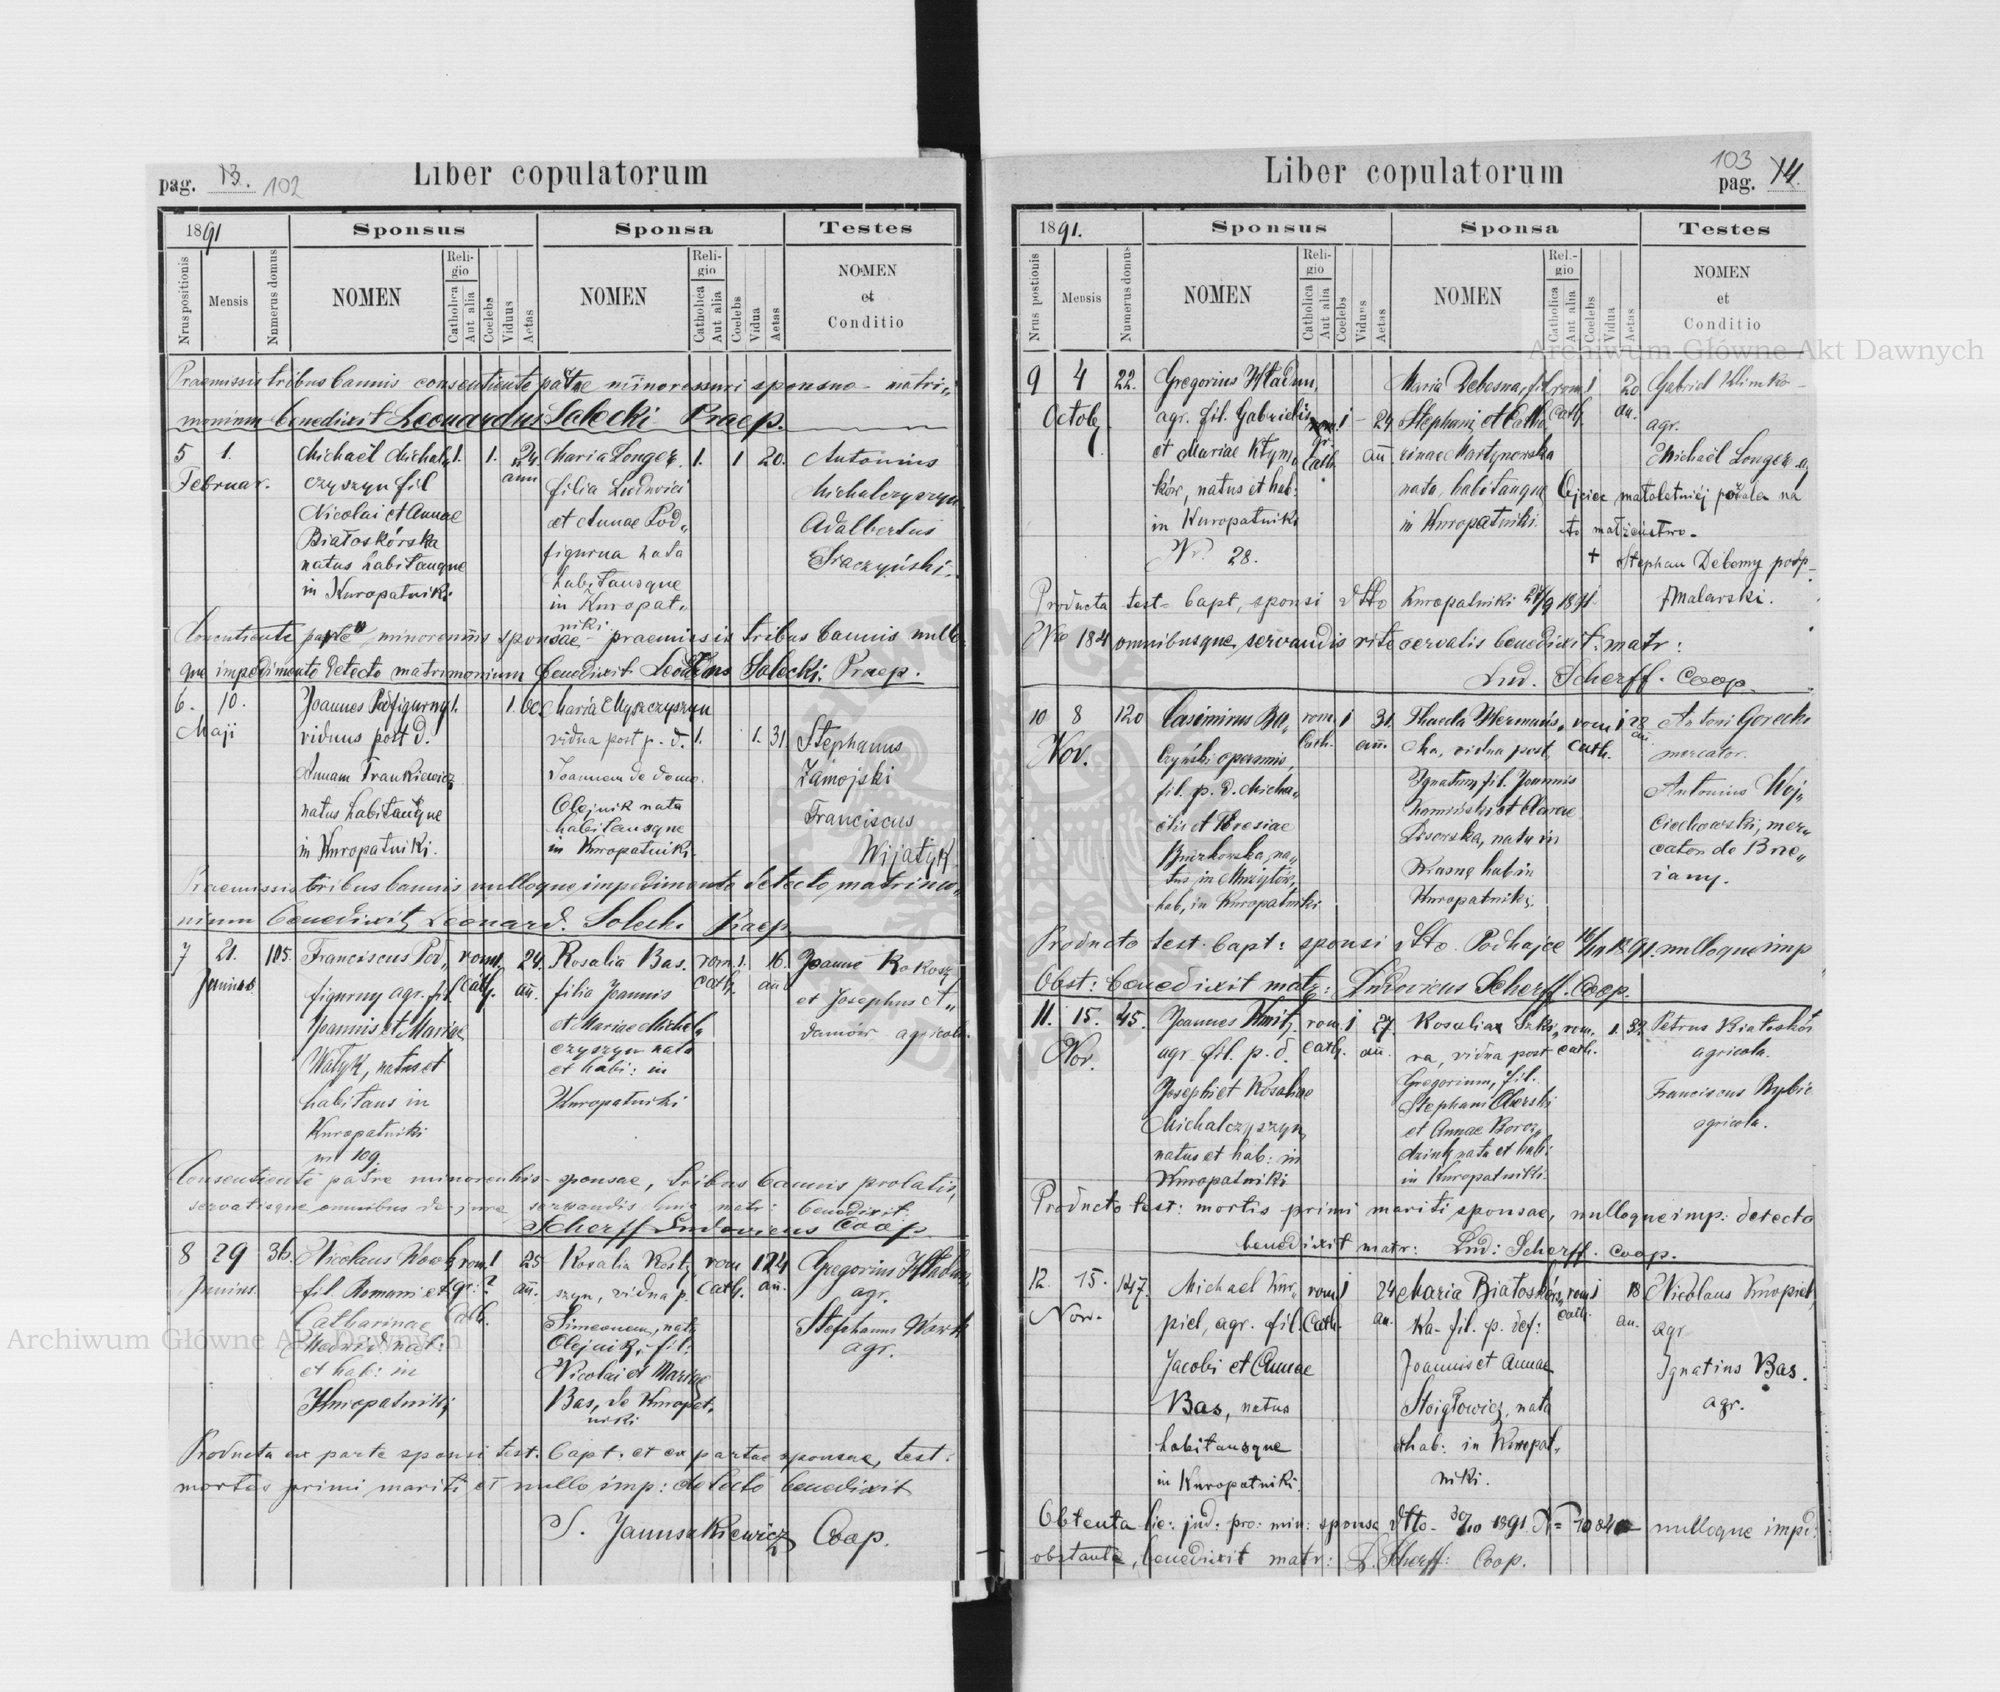 pag. 13. 102
Liber copulatorum
1891
Sponsus
Sponsa
Testes
Nrus positionis
Mensis
Numerus domus
NOMEN
Religio
Catholica
Aut alia
Coelebs
Viduus
Aetas
NOMEN
Religio
Catholica
Aut alia
Coelebs
Vidua
Aetas
NOMEN
et
Conditio
Praemissis tribus bannis consentiente patre minorennis sponsae matri„
monium benedixit Leonardus Solecki Praep.
5 1.
Februar.
Michaël Michal„
czyszyn fil
Nicolai et Annae
Białoskórska
natus habitansque
in Kuropatniki
1. 1. 24
ann
Maria Longer
filia Ludovici
et Annae Pod„
figurna nata
habitansque
in Kuropat„
niki
1. 1 20.
Antonius
Michalczyszyn
Adalbertus
Consentiente patre minorennis sponsae praemissis tribus bannis nullo
que impedimento detecto matrimonium benedixit Solecki. Praep.
6. 10.
Maji
Joannes Podfigurny
viduus post d.
Annam Frankiewicz
natus habitansque
in Kuropatniki.
1. 1. 60.
Maria Myszczyszyn
vidua post p. d.
Joannem de domo
Olejnik nata
habitansque
in Kuropatniki
1. 1. 31
Stephanus
Zamojski
Franciscus
Wijatyk
Praemissis tribus bannis nulloque impedimento detecto, matrimo„
nium benedixit Leonard. Solecki Praep
7 21. 105.
Junius
Franciscus Pod„
figurny agr. fil.
Joannis et Mariae
Watyk, natus et
habitans in
Kuropatniki
nr 109
rom 1. 24.
cath. an.
Rosalia Bas.
filia Joannis
et Mariae Michal„
czyszyn nata
et habi: in
Kuropatniki
rom. 1. 16.
cath. an
Joanne Kokosz
et Josephus A„
damów agricola.
Consentiente patre minorennis sponsae, tribus bannis prolatis,
servatisque omnibus de jure servandis huic matr: benedixit:
Scherff Ludovicus Coop.
8 29 36.
Junius.
Nicolaus Wowk
fil. Romani et
Catharinae
nat:
et hab: in
Kuropatniki
rom. 1 25
gr: ? an.
Cath.
Rosalia
szyn, vidua p.
Simeonem, nata
Olejnik, fil:
Nicolai et Mariae
Bas, de Kuropat„
niki
rom 1 24
cath. an.
Gregorius
agr.
Stephanus Wowk
agr.
Producta ex parte sponsi test. bapt. et ex partae sponsae, test.
mortis primi mariti et nullo imp: detecto benedixit
S. Januszkiewicz Coop.
Liber copulatorum
103
pag. 14.
1891.
Sponsus
Sponsa
Testes
Nrus postionis
Mensis
Numerus domus
NOMEN
Religio
Catholica
Aut alia
Coelebs
Viduus
Aetas
NOMEN
Rel.-gio
Catholica
Aut alia
Coelebs
Vidua
Aetas
NOMEN
et
Conditio
9 4 22.
Octob
Gregorius
agr. fil. Gabrielis
et Mariae Klym„
ków, natus et hab:
in Kuropatniki
Nr. 28.
rom. 1 – 24
gr. an.
Cath.
Maria Debesna, fil
Stephani et Catha„
rinae Martynowska
nata, habitansque
in Kuropatniki.
rom 1 20
cath. an.
Gabriel Klimko
agr.
Michaël Longer a
Ojciec małoletniej na
to małżeństwo.
+ Stephan Debesny podp
Malarski.
Producta test– bapt, sponsi dtto Kuropatniki 27/9 1891
Nro 184 omnibusque, servandis rite servatis benedixit matr:
Lud. Scherff. Coop.
10 8 120
Nov.
Casimirus
czyński
fil. p. d. Micha„
elis et Theresiae
na„
tus, in
hab, in Kuropatniki
rom. 1 31.
Cath. ann.
Thecla
cka, vidua post,
Ignatium, fil. Joannis
et Clarae
Lisowska, nata in
Krasne hab in
Kuropatniki.
rom 1 28
cath. an.
Antoni Gorecki
mercator.
Antonius Woj„
ciechowski, mer„
cator de Brze„
żany.
Producto test. bapt: sponsi dtto. Podhajce 1891. nulloque imp
obst: benedixit matr: Ludovicus Scherff. Coop.
11. 15. 45.
Nov.
Joannes Kmit,
agr fil. p. d.
Josephi et Rosaliae
Michalczyszyn
natus et hab: in
Kuropatniki
rom. 1 27.
cath. an.
Rosalia
ra, vidua post
Gregorium, fil.
Stephani
et Annae
nata et hab:
in Kuropatniki.
rom. 1. 32
cath.
Petrus Białoskór
agricola.
Franciscus
agricola.
Producto test: mortis primi mariti sponsae, nulloque imp: detecto
benedixit matr: Lud: Scherff. coop.
12. 15. 147.
Nov.
Michael Knr„
piel, agr. fil.
Jacobi et Annae
Bas, natus
habitansque
in Kuropatniki.
rom 1 24
Cath. an.
Maria Białoskórs„
ka– fil. p. def:
Joannis et Annae
nata
et hab: in Kuropat„
niki.
rom 1 18
cath. an.
Nicolaus Knopiel,
agr
Ignatius Bas.
agr.
Obtenta lic: jud: pro: min: sponsa dtto– 30/10 1891. N= nulloque impd:
obstante, benedixit matr: L. Scherff: Coop.
Archiwum Główne Akt Dawnych
Archiwum Główne Akt Dawnych